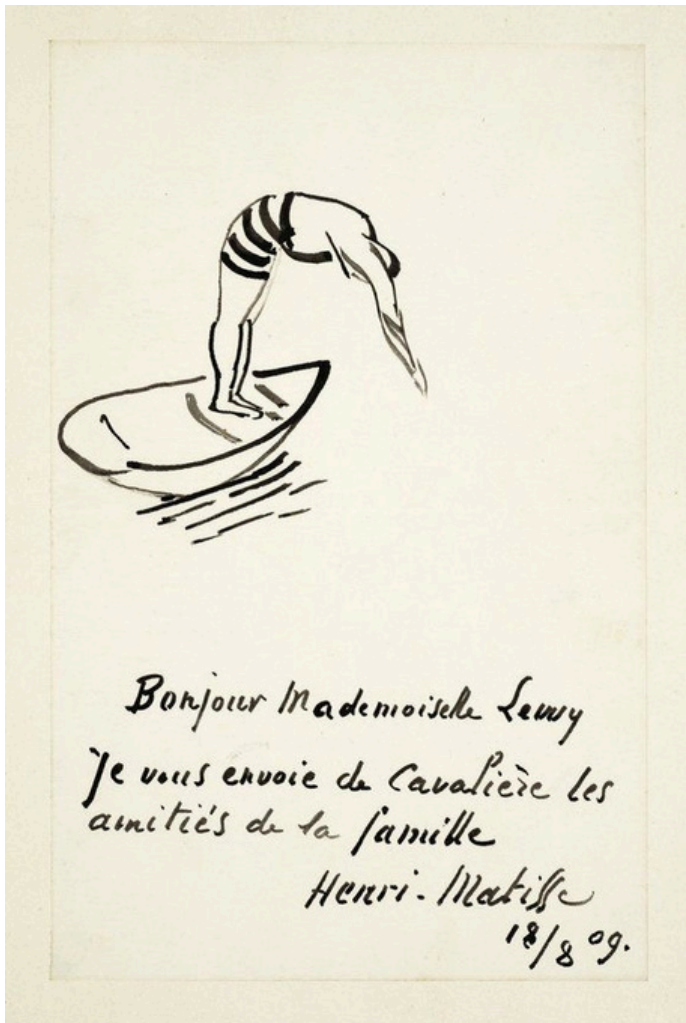 Bonjour Mademoiselle Lewy
Je vous envoie de Cavalière les
amitiés de la famille
Henri-Matisse
18/8 09.